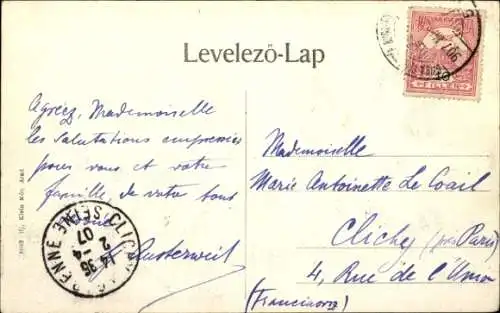 Levelező-Lap
FILLÉR
Agréez, Mademoiselle
les salutations empressées
pour vous et votre
famille de votre tout
Austerweil
Mademoiselle
Marie Antoinette Le Coail
Clichy (près Paris)
4, Rue de l'Union
(Franciaország)
CLICHY LA GARENNE
SEINE
14 35
2 - 4
07
Klein Mór, Arad